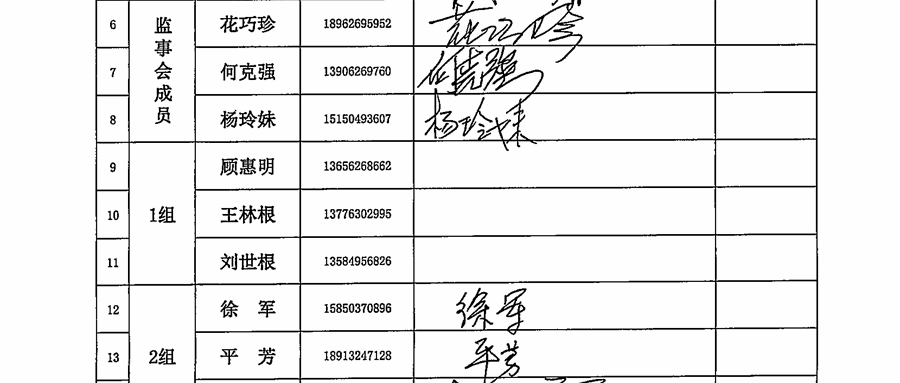 6 监事会成员 花巧珍 18962695952 花巧珍
7 何克强 13906269760 何克强
8 杨玲妹 15150493607 杨玲妹
9 1组 顾惠明 13656268662
10 王林根 13776302995
11 刘世根 13584956826
12 2组 徐 军 15850370896 徐军
13 平 芳 18913247128 平芳